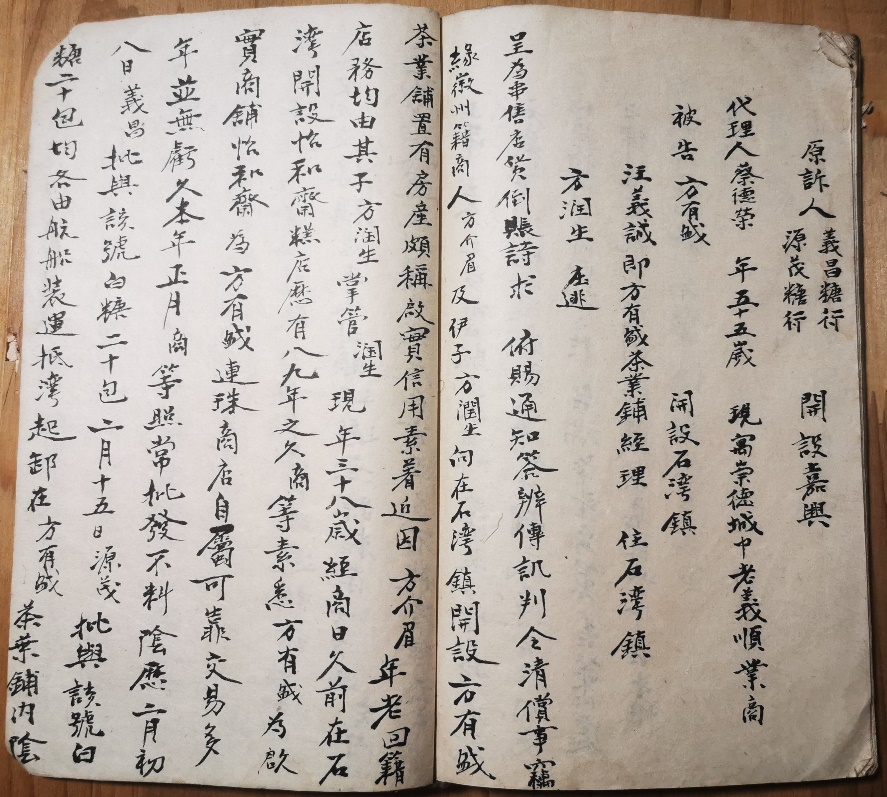 原訴人 義昌糖行 開設嘉興
源茂糖行
代理人蔡德榮 年五十五歲 現寓崇德城中老義順業商
被告 方有盛 開設石灣鎮
汪義誠即方有盛茶業鋪經理 住石灣鎮
方潤生 在逃
呈為串售店貨倒賬請求 俯賜通知答辯傳訊判令清償事竊
緣徽州籍商人方介眉及伊子方潤生向在石灣鎮開設方有盛
茶業舖置有房產頗稱啟實信用素著近因方介眉年老回籍
店務均由其子方潤生掌管潤生現年三十八歲經商日久前在石
灣開設怡和齋糕店歷有八九年之久商等素悉方有盛為啟
實商舖怡和齋為方有盛連珠商店自屬可靠交易多
年並無虧欠本年正月商等照常批發不料陰歷二月初
八日義昌批與該號白糖二十包二月十五日源茂批與該號白
糖二十包均各由航船裝運抵灣起卸在方有盛茶葉鋪內陰